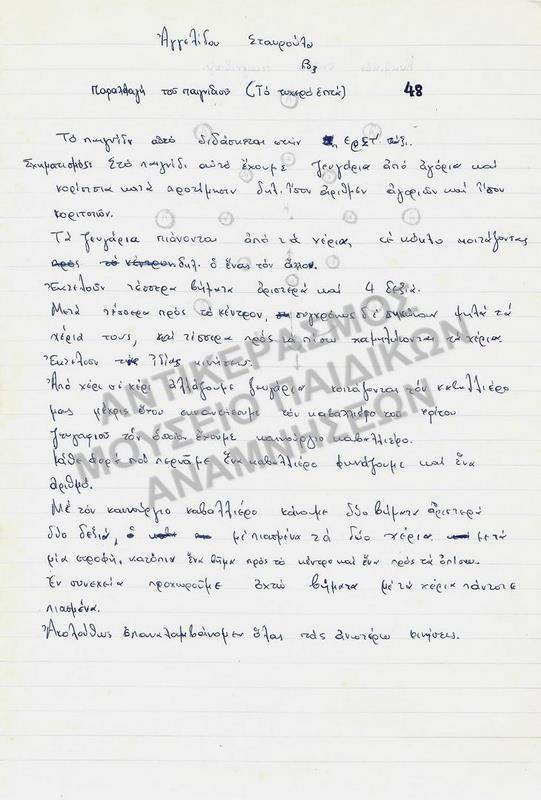 Ἀγγελίδου Σταυρούλα
Β3
Παραλλαγή τοῦ παιγνιδιοῦ (Τό τυχερό ἑπτά) 48
Τό παιγνίδι αὐτό διδάσκεται στήν Ε΄ ἐρ ΣΤ΄ τάξι.
Σχηματισμός: Στό παιγνίδι αὐτό ἔχουμε ζευγάρια ἀπό ἀγόρια καί
κορίτσια κατά προτίμησιν δηλ. ἴσον ἀριθμόν ἀγοριῶν καί ἴσον
κοριτσιῶν.
Τά ζευγάρια πιάνονται ἀπό τά χέρια, σέ κύκλο κοιτάζοντας
πρός τό κέντρον δηλ. ὁ ἕνας τόν ἄλλον.
Ἐκτελοῦν τέσσερα βήματα ἀριστερά καί 4 δεξιά.
Μετά τέσσερα πρός τό κέντρον, συγχρόνως δέ σηκώνουν ψηλά τά
χέρια τους, καί τέσσερα πρός τά πίσω χαμηλώνοντας τά χέρια.
Ἐκτελοῦν τάς ἰδίας κινήσεις.
Ἀπό χέρι σέ χέρι ἀλλάζουμε ζευγάρια κοιτάζοντας τόν καβαλλιέρο
μας μέχρις ὅτου συναντήσουμε τόν καβαλλιέρο τοῦ τρίτου
ζευγαριοῦ τόν ὁποῖον ἔχουμε καινούργιο καβαλλιέρο.
Κάθε φορά πού περνᾶμε ἕνα καβαλλιέρο φωνάζουμε καί ἕνα
ἀριθμό.
Μέ τόν καινούργιο καβαλλιέρο κάνομε δύο βήματα ἀριστερά
δύο δεξιά, μέ πιασμένα τά δύο χέρια μετά
μία στροφή, κατόπιν ἕνα βῆμα πρός τό κέντρο καί ἕνα πρός τά ὀπίσω.
Ἐν συνεχεία προχωροῦμε ὀχτώ βήματα μέ τά χέρια πάντοτε
πιασμένα.
Ἀκολούθως ἐπαναλαμβάνομεν ὅλας τάς ἀνωτέρω κινήσεις.
ΑΝΤΙΚΑΤΟΠΤΡΙΣΜΟΣ
ΜΟΥΣΕΙΟ ΠΑΙΔΙΚΩΝ
ΑΝΑΜΝΗΣΕΩΝ